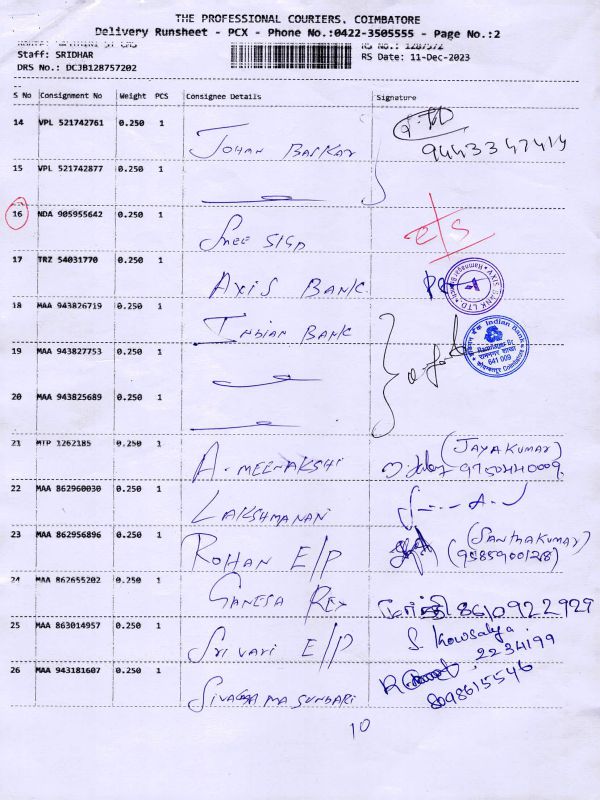 THE PROFESSIONAL COURIERS, COIMBATORE
Delivery Runsheet - PCX - Phone No.:0422-3505555 - Page No.:2
RS No.: 1287572
Staff: SRIDHAR
RS Date: 11-Dec-2023
DRS No.: DCJB128757202
S No Consignment No Weight PCS Consignee Details Signature
14 VPL 521742761 0.250 1 JOHAN BASKAR 9443347414
15 VPL 521742877 0.250 1
16 NDA 905955642 0.250 1 SREE SIGN
17 TRZ 54031770 0.250 1 AXIS BANK AXIS BANK LTD
18 MAA 943826719 0.250 1 INDIAN BANK
Indian Bank
641 009
19 MAA 943827753 0.250 1
20 MAA 943825689 0.250 1
21 MTP 1262185 0.250 1 A. MEENAKSHI (JAYAKUMAR)
22 MAA 862960030 0.250 1 LAKSHMANAN
23 MAA 862956896 0.250 1 ROHAN E/P (SANTHAKUMAR)
24 MAA 862655202 0.250 1 GANESA REY 8610922929
25 MAA 863014957 0.250 1 SRI VARI E/P S. Kowsalya
2234199
26 MAA 943181607 0.250 1 SIVAGAMA SUNDARI 8098615546
10